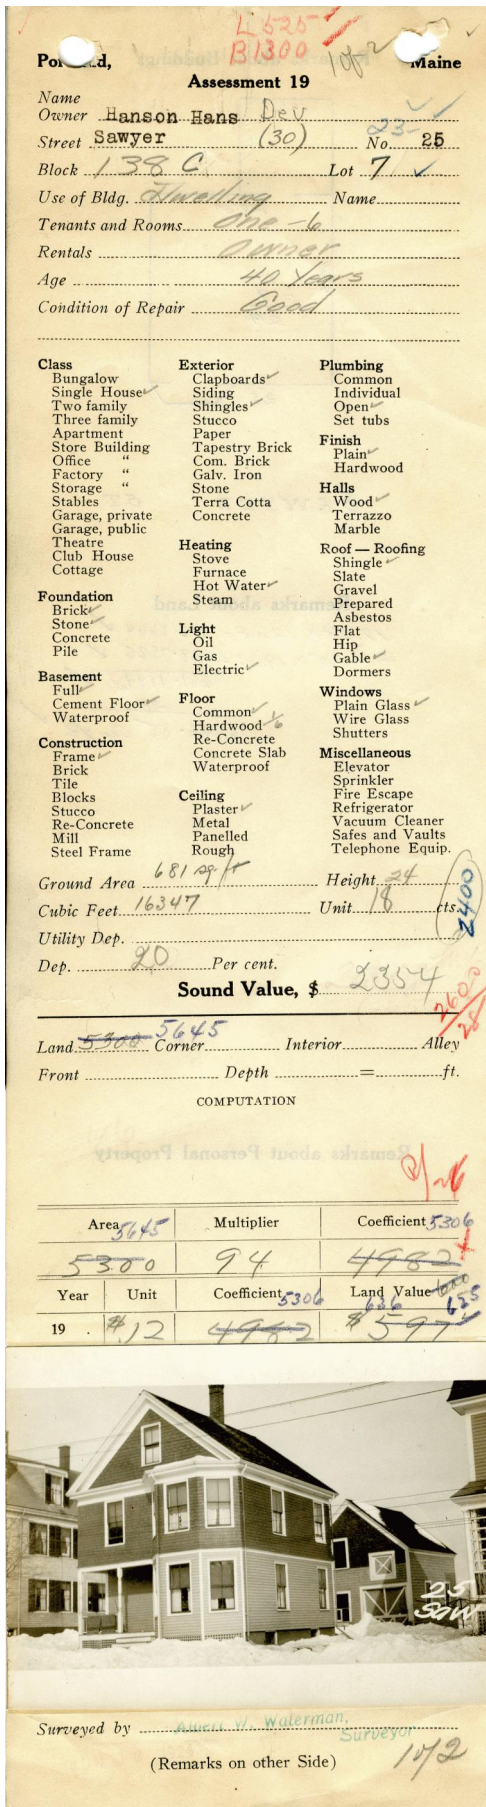 L 525
B 1300
1 of 2
Portland, Maine
Assessment 19
Name
Owner Hanson Hans Dev
23-
Street Sawyer (30) No. 25
Block 138 C Lot 7
Use of Bldg. Dwelling Name
Tenants and Rooms one - 6
Rentals Owner
Age 40 Years
Condition of Repair Good
Class
Bungalow
Single House ✓
Two family
Three family
Apartment
Store Building
Office "
Factory "
Storage "
Stables
Garage, private
Garage, public
Theatre
Club House
Cottage
Foundation
Brick ✓
Stone ✓
Concrete
Pile
Basement
Full ✓
Cement Floor ✓
Waterproof
Construction
Frame ✓
Brick
Tile
Blocks
Stucco
Re-Concrete
Mill
Steel Frame
Exterior
Clapboards ✓
Siding
Shingles ✓
Stucco
Paper
Tapestry Brick
Com. Brick
Galv. Iron
Stone
Terra Cotta
Concrete
Heating
Stove
Furnace
Hot Water ✓
Steam
Light
Oil
Gas
Electric ✓
Floor
Common ✓
Hardwood 1/6
Re-Concrete
Concrete Slab
Waterproof
Ceiling
Plaster ✓
Metal
Panelled
Rough
Plumbing
Common
Individual
Open ✓
Set tubs
Finish
Plain ✓
Hardwood
Halls
Wood ✓
Terrazzo
Marble
Roof — Roofing
Shingle ✓
Slate
Gravel
Prepared
Asbestos
Flat
Hip
Gable ✓
Dormers
Windows
Plain Glass ✓
Wire Glass
Shutters
Miscellaneous
Elevator
Sprinkler
Fire Escape
Refrigerator
Vacuum Cleaner
Safes and Vaults
Telephone Equip.
Ground Area 681 sq. ft Height 24
Cubic Feet 16347 Unit 18 cts.
2400
Utility Dep.
Dep. 20 Per cent.
Sound Value, $ 2354
2600
28
Land 5300 5645 Corner Interior Alley
Front Depth = ft.
COMPUTATION
Remarks about Personal Property
Area 5645 Multiplier Coefficient 5306
5300 94 4982
Year Unit Coefficient 5306 Land Value 600
636 625
19 . $ 12 4982 $ 597
25
SAW
Surveyed by Albert W. Waterman,
Surveyor
(Remarks on other Side) 1 of 2